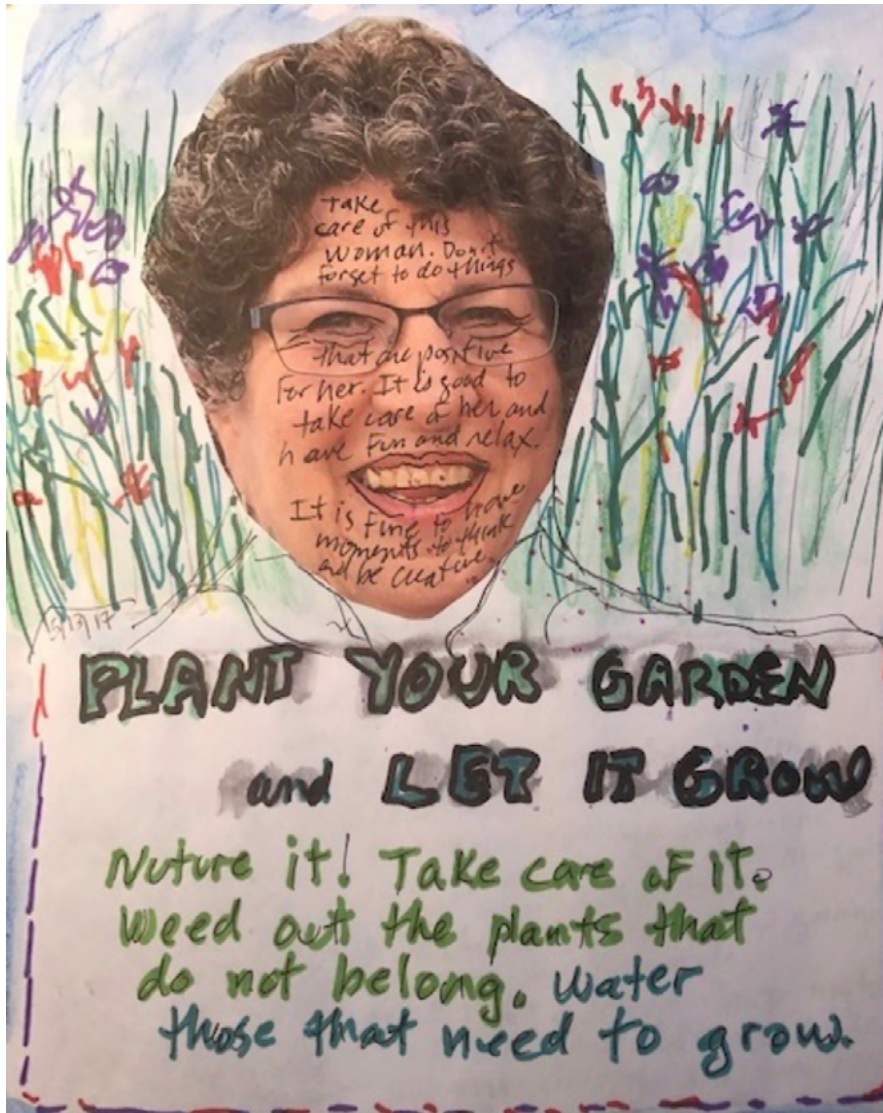 Take
care of this
woman. Don't
forget to do things
that are positive
for her. It is good to
take care of her and
have fun and relax.
It is fine to have
moments to think
and be creative.
5/13/17
PLANT YOUR GARDEN
and LET IT GROW
Nuture it! Take care of it.
Weed out the plants that
do not belong. Water
those that need to grow.